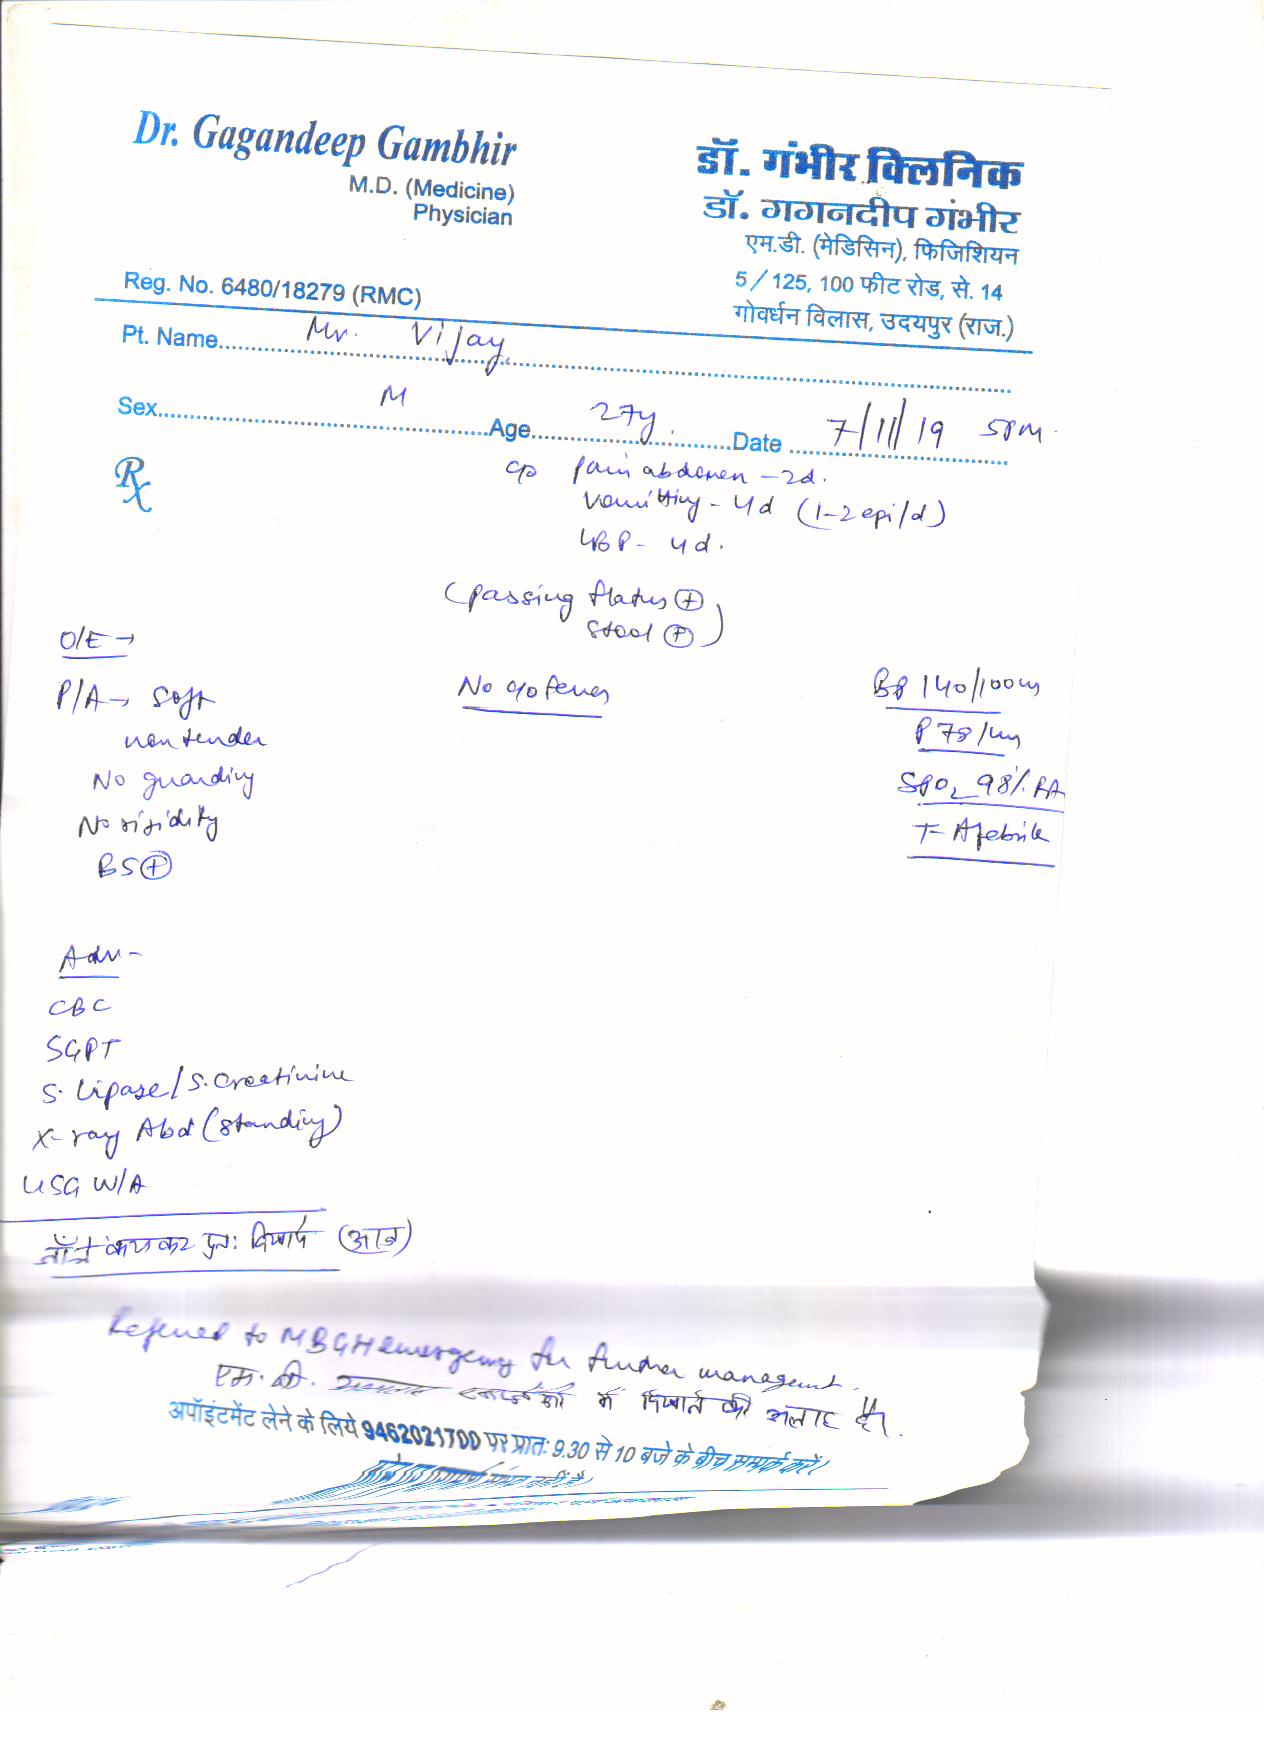 Dr. Gagandeep Gambhir
M.D. (Medicine)
Physician
Reg. No. 6480/18279 (RMC)
डॉ. गंभीर क्लिनिक
डॉ. गगनदीप गंभीर
एम.डी. (मेडिसिन), फिजिशियन
5/125, 100 फीट रोड, से. 14
गोवर्धन विलास, उदयपुर (राज.)
Pt. Name Mr. Vijay
Sex M Age 27y. Date 7/11/19 5PM
Rx
c/o pain abdomen - 2d.
Vomitting - 4d (1-2 epi/d)
- 4d.
(passing flatus +
stool +)
O/E →
P/A → Soft
non tender
No guarding
No rigidity
BS +
No c/o fever
BP 140/100
P 78/
SPO2 98% RA
T- Afebrile
Adv -
CBC
SGPT
S. Lipase/S. Creatinine
X-ray Abd (standing)
USG W/A
जाँच करा कर पुनः दिखायें (आज)
Referred to MBGH emergency for further managemt.
एम. बी. में दिखाने की सलाह है।
अपॉइंटमेंट लेने के लिये 9462021700 पर प्रातः 9.30 से 10 बजे के बीच सम्पर्क करें।